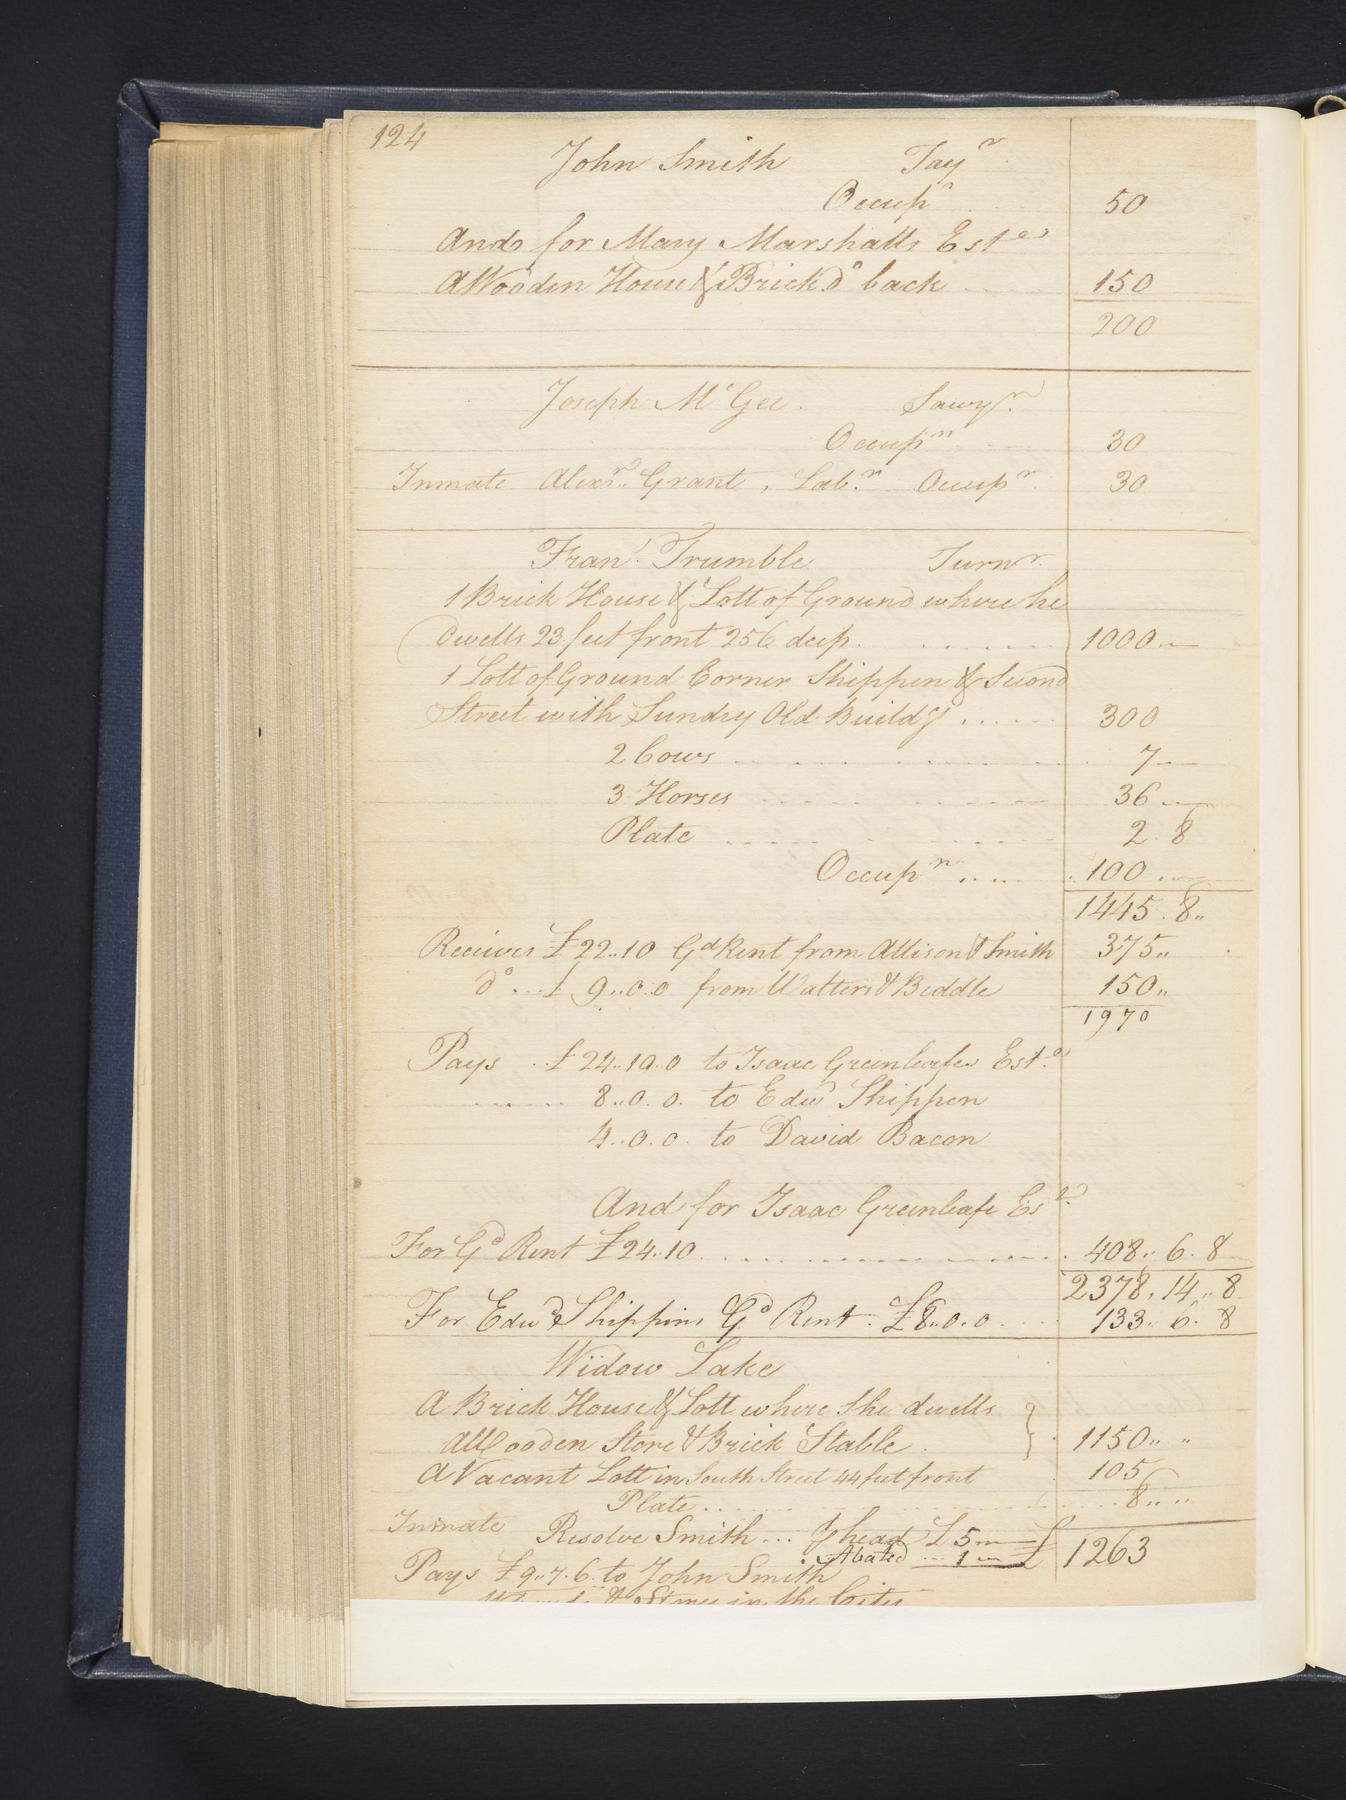 124
John Smith Tayr
Occupn 50
And for Mary Marshalls Este
A Wooden House & Brick Do back 150
200
Joseph McGee. Sawyr.
Occupn 30
Inmate Alexr. Grant, Labr. Occupn. 30
Frans. Trumble Turnr.
1 Brick House & Lott of Ground where he
dwells 23 feet front 256 deep. 1000
1 Lott of Ground Corner Shippen & Second
Street with Sundry Old Buildgs 300
2 Cows 7
3 Horses 36
Plate 2. 8
Occupn 100
1445. 8
Receives £22..10 Gd Rent from Allison & Smith 375
do £ 9..0.0 from Watters & Beddle 150
1970
Pays £24..10.0 to Isaac Greenleafes Este
8..0.0. to Edwd Shippen
4..0.0. to David Bacon
And for Isaac Greenleafe Este
For Gd Rent £24..10 408.. 6. 8
2378. 14.. 8
For Edwd Shippins Gd Rent. £8..0.0 133.. 6. 8
Widow Lake
A Brick House & Lott where She dwells
A Wooden Store & Brick Stable. 1150
A Vacant Lott in South Street 44 feet front 105
Plate 8
Inmate Resolve Smith... head £5
Abated 1 £ 1263
Pays £9..7.6. to John Smith
in the City